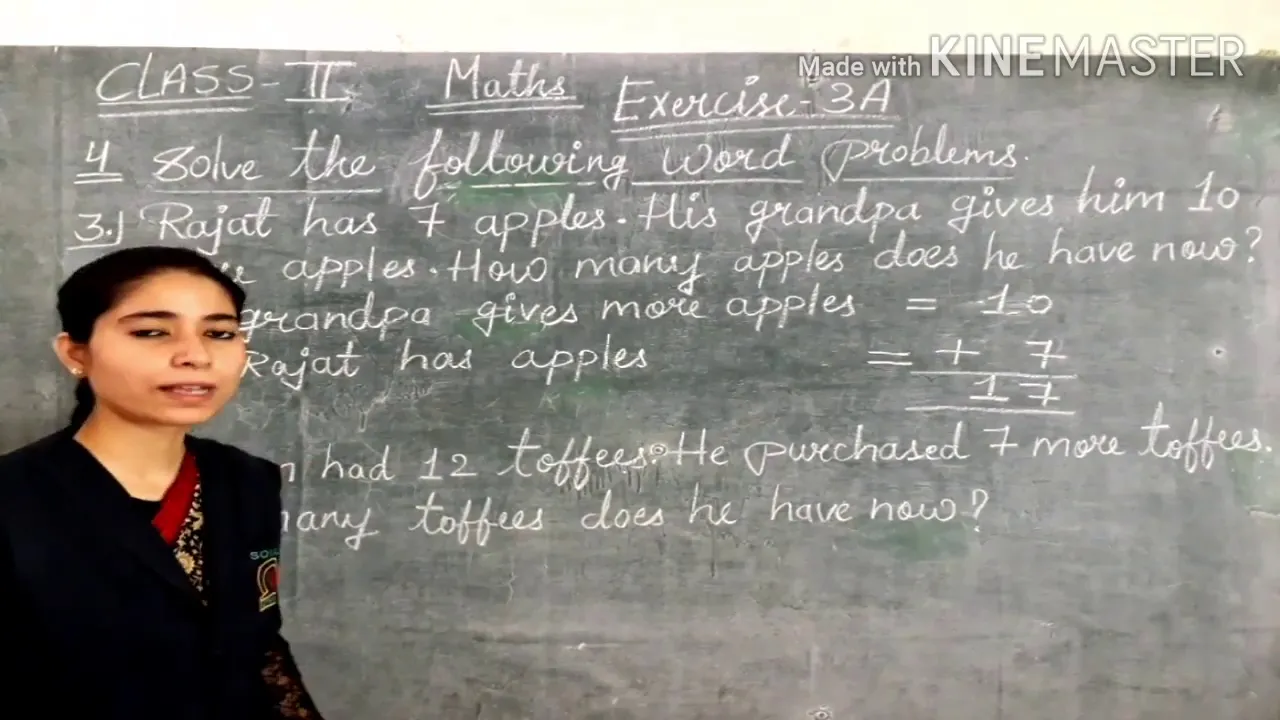 Made with KINEMASTER
CLASS-II Maths Exercise-3A
4 Solve the following word problems.
3.) Rajat has 7 apples. His grandpa gives him 10
apples. How many apples does he have now?
grandpa gives more apples = 10
Rajat has apples = + 7
17
had 12 toffees. He purchased 7 more toffees.
toffees does he have now?